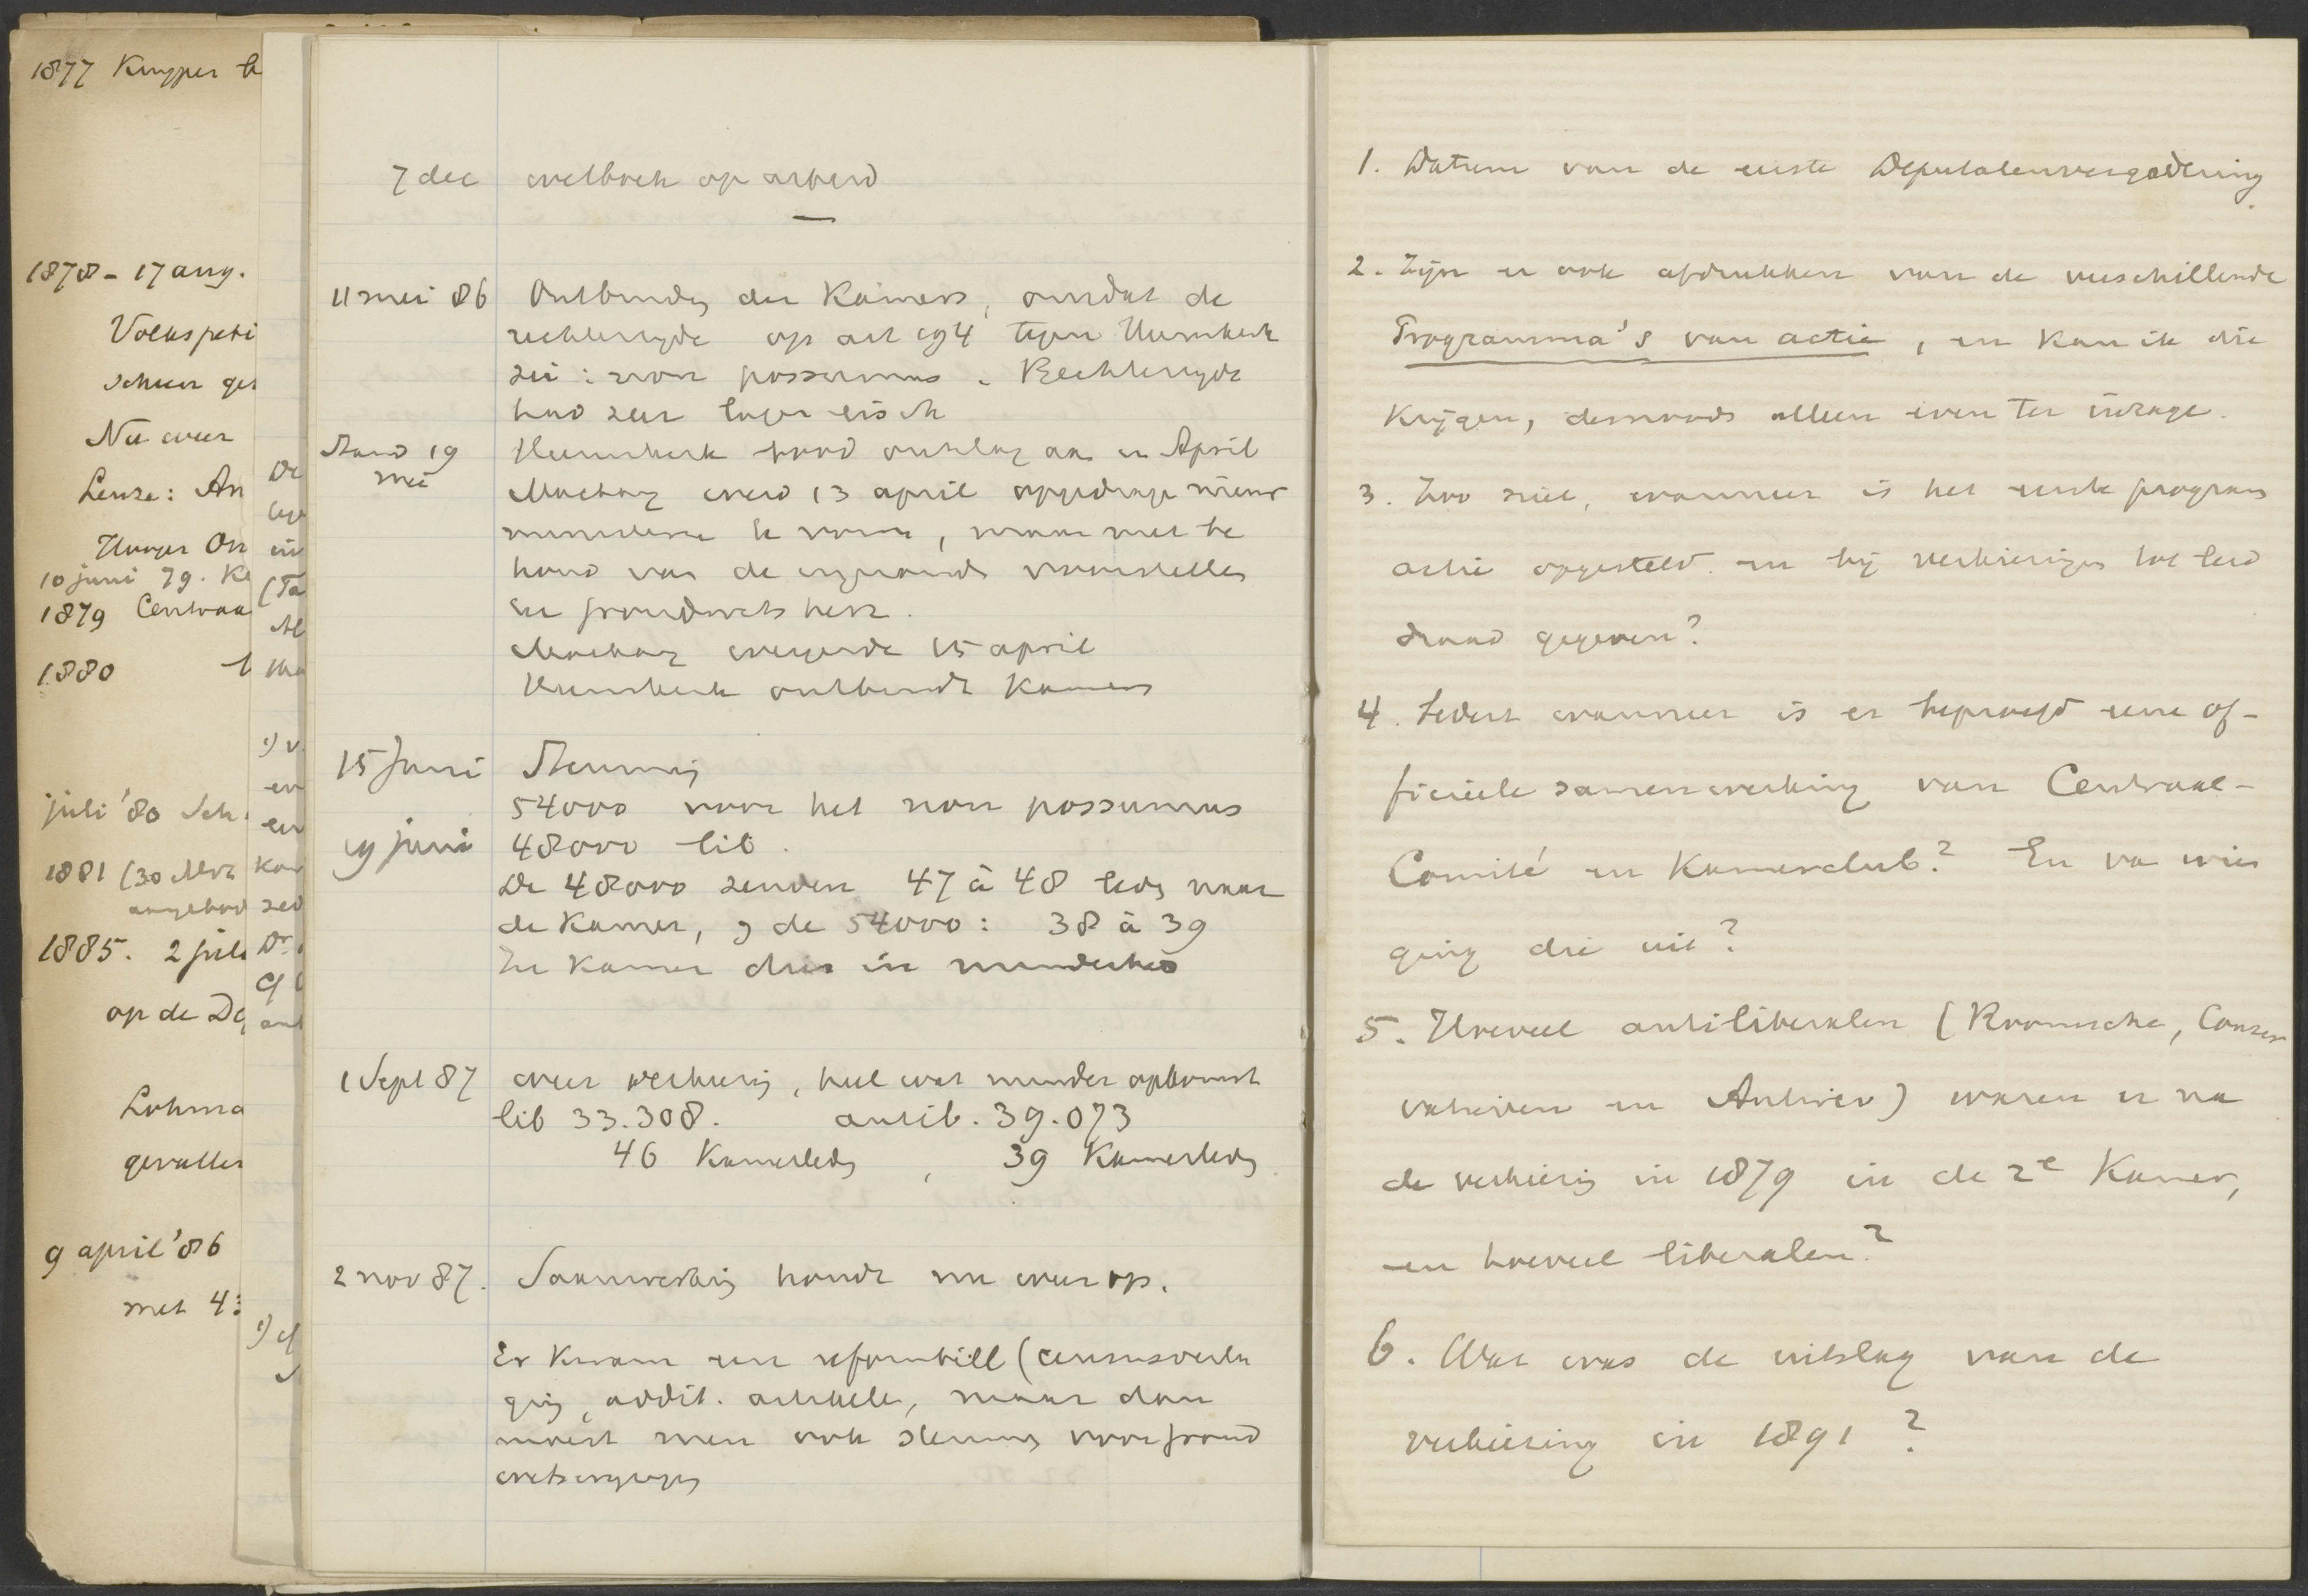 1877 Kuyper
1878 - 17 aug.
Volkspeti
Nu weer
10 juni 79.
1879 Centraa
1880
juli '80 Sch
1881 (30
aangebod
1885. 2 juli
op de De
Lohma
gevallen
9 april '86
met 4
7 dec wetboek op arbeid
11 mei 86 Ontbinding der Kamers, omdat de
rechterzijde op art 194 tegen Heemskerk
zei: non possumus. Rechterzijde
had zeer lager eisch
Stand 19 mei Heemskerk bood ontslag aan in April
Mackay werd 13 april opgedrage nieuw
ministerie te vorme, maar met be
houd van de ingezonde voorstelle
in grondwetsherz.
Mackay weigerde 15 april
Heemskerk ontbindt Kamers
15 Juni Stemming
54000 voor het non possumus
19 juni 48000 lib.
De 48000 zenden 47 à 48 leds naar
de Kamer, en de 54000: 38 à 39
In Kamer dus in minderheid
1 Sept 87 weer verkiezing, heel wat minder opkomst
lib 33.308. antilib. 39.073
46 Kamerleds, 39 Kamerleds
2 nov 87. Saamwerking houdt nu weer op.
Er kwam een reformbill (censusverla
ging, addit. artikele, maar dan
moest men ook stemmen voor grond
wetswijzigin
1. Datum van de eerste Deputatenvergadering.
2. Zijn er ook afdrukken van de verschillende
Programma's van actie, en kan ik die
krijgen, desnoods alleen even ter inzage.
3. Zoo niet, wanneer is het eerste program
actie opgesteld en bij verkiezingen tot leid
draad gegeven?
4. Sedert wanneer is er beproefd eene of-
ficieele samenwerking van Centraal-
Comité en Kamerclub? En va wien
ging die uit?
5. Hoeveel antiliberalen (Roomsche, Conser
vatieven en Antirev) waren er na
de verkiezing in 1879 in de 2e Kamer,
en hoeveel liberalen?
6. Wat was de uitslag van de
verkiezing in 1891?